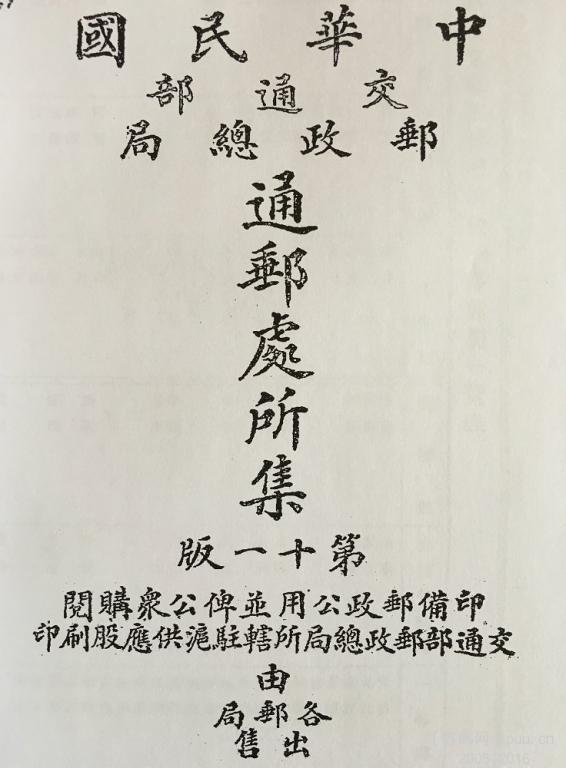 中華民國
交通部
郵政總局
通郵處所集
第十一版
印備郵政公用並俾公衆購閱
交通部郵政總局所轄駐滬供應股刷印
由
各郵局
出售